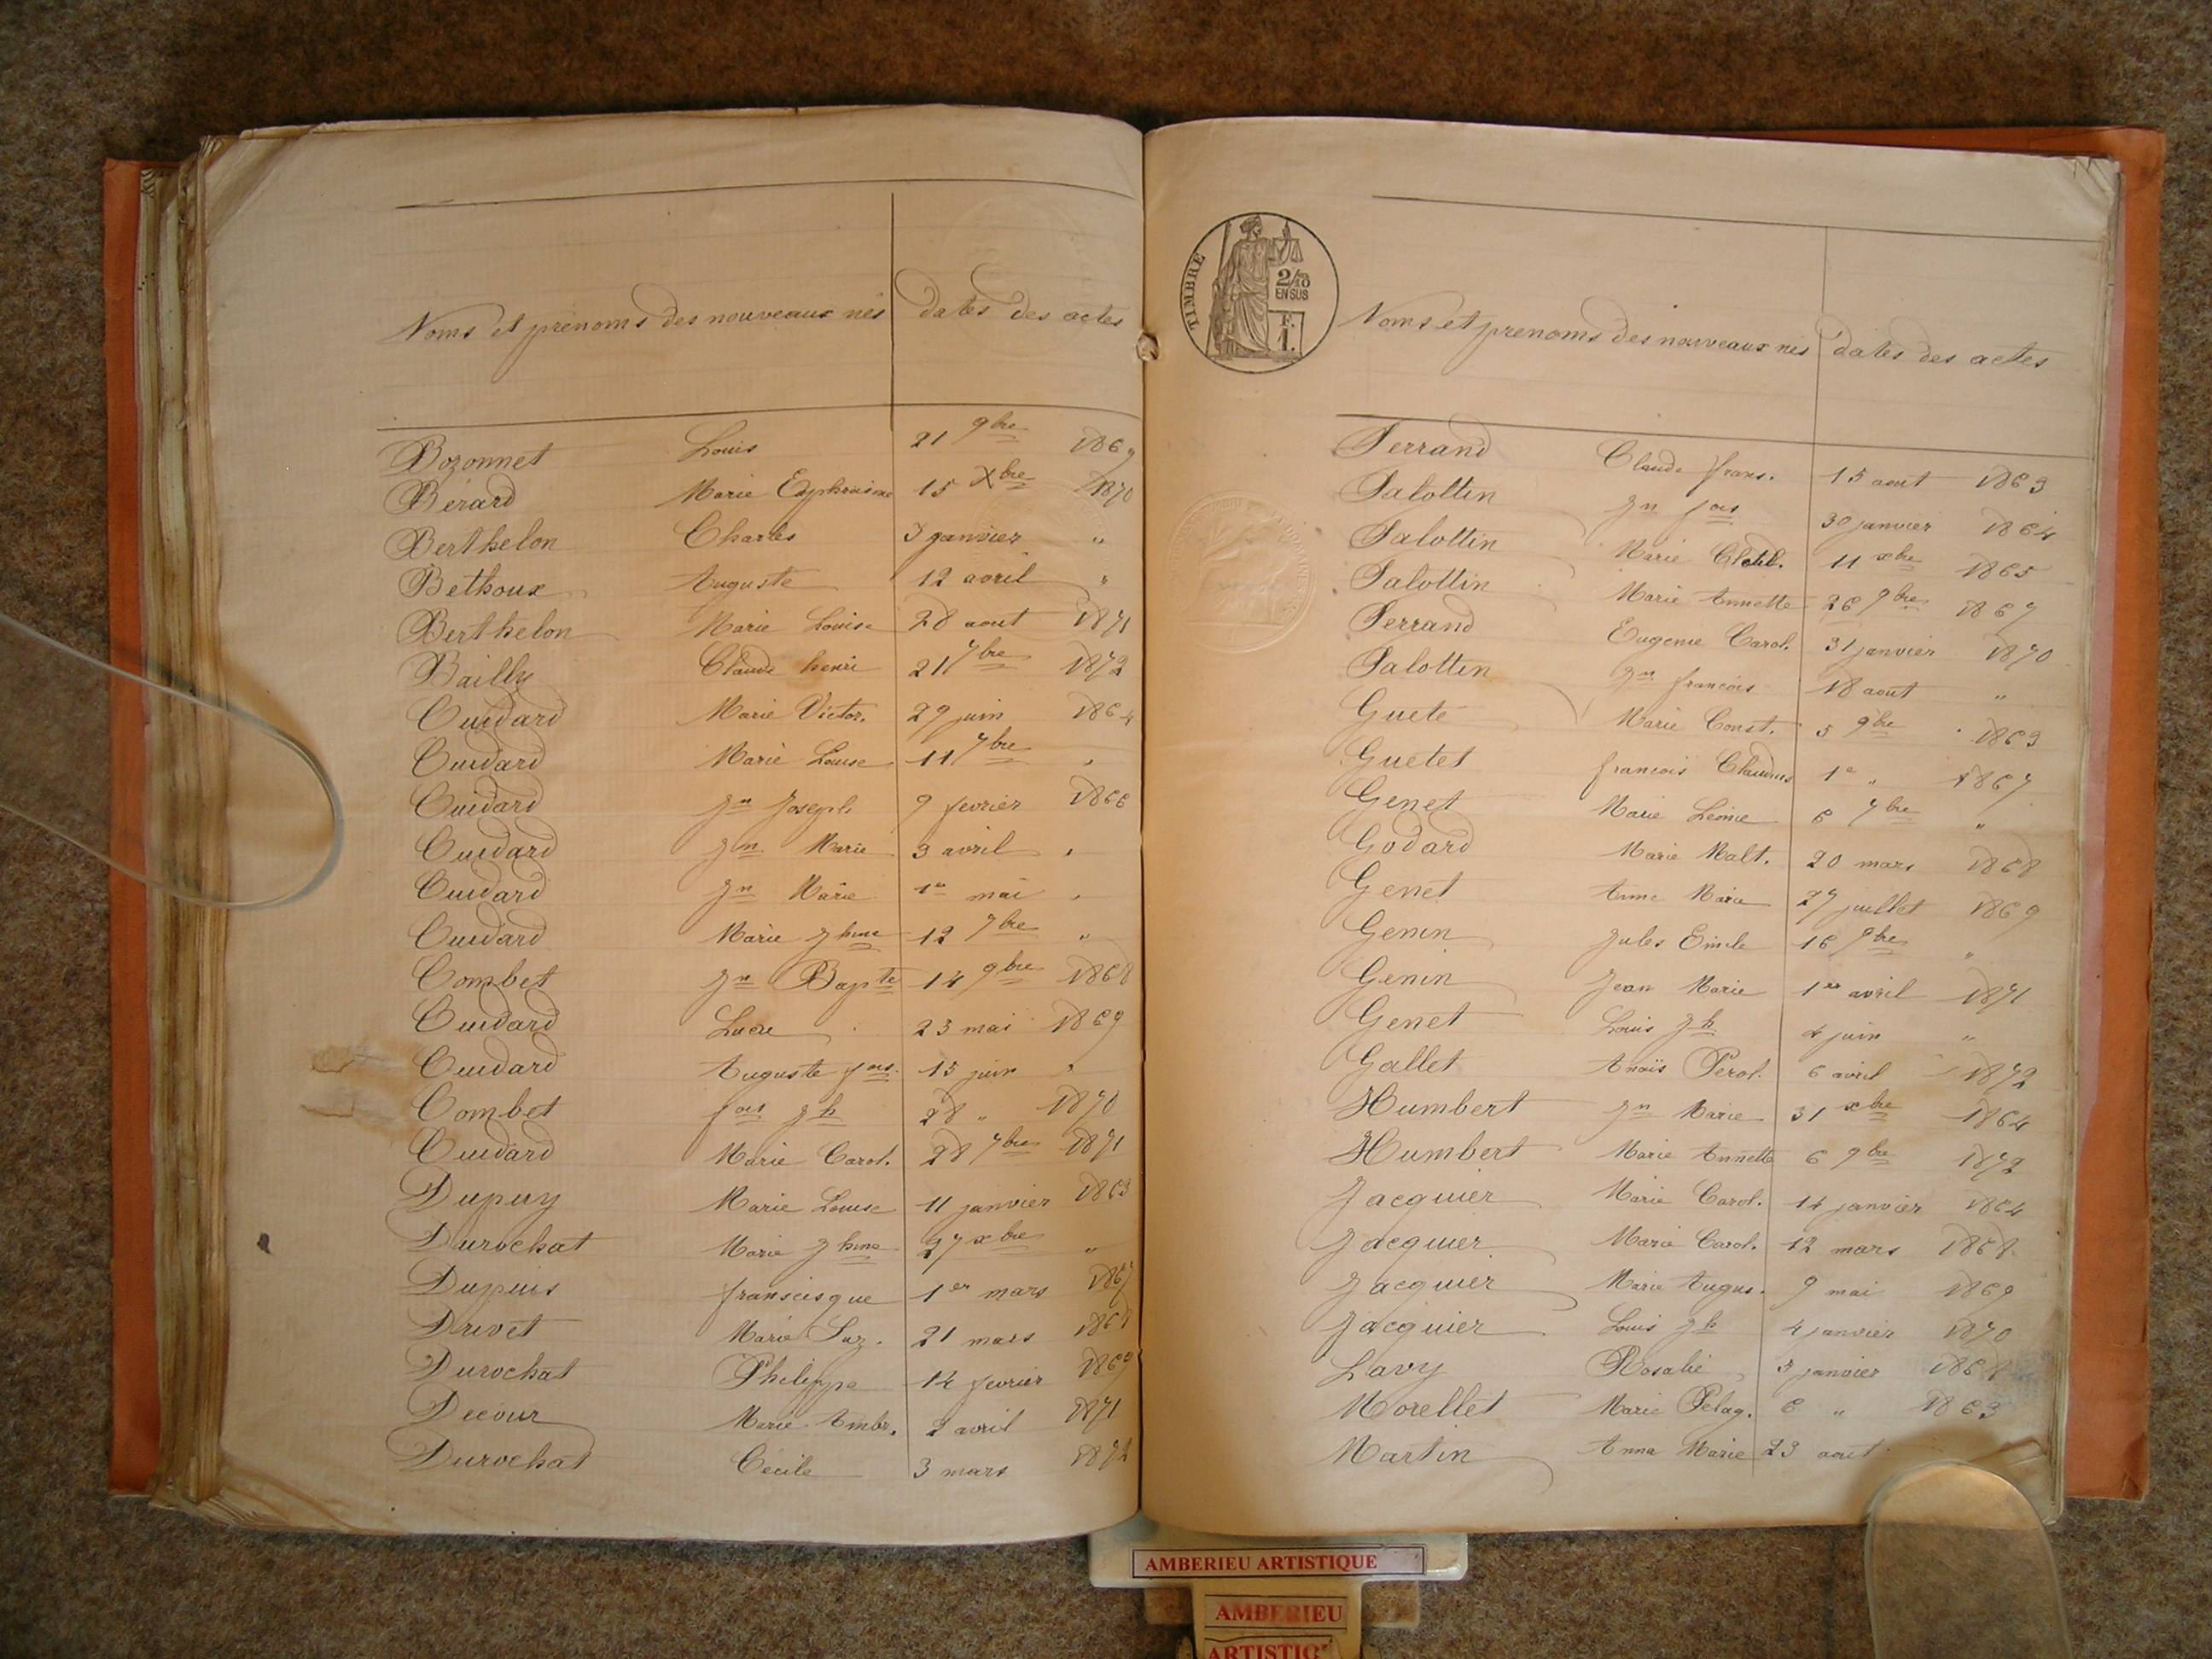 Noms et prenoms des nouveaux nés dates des actes
Bozonnet Louis 21 9bre 1869
Bérard Marie Euphrasine 15 Xbre 1870
Berthelon Charles 3 janvier "
Bethoux Auguste 12 avril "
Berthelon Marie Louise 28 aout 1871
Bailly Claude henri 21 7bre 1872
Cuidard Marie Victor. 29 juin 1864
Cuidard Marie Louise 11 7bre "
Cuidard Jn Joseph 9 fevrier 1866
Cuidard Jn Marie 3 avril "
Cuidard Jn Marie 1er mai "
Cuidard Marie Jhine 12 7bre "
Combet Jn Bapte 14 9bre 1868
Cuidard Lucie 23 mai 1869
Cuidard Auguste fois 15 juin "
Combet fois Jh 28 " 1870
Cuidard Marie Carol. 28 7bre 1871
Dupuy Marie Louise 11 janvier 1863
Durochat Marie Jhine 27 xbre "
Dupuis franscisque 1er mars 1867
Drivet Marie Luz. 21 mars 1868
Durochat Philippe 14 fevrier 1869
Decour Marie Ambr. 2 avril 1871
Durochat Cécile 3 mars 1872
TIMBRE
2/10
EN SUS
F.
1.
Noms et prenoms des nouveaux nés dates des actes
Ferrand Claude frans. 15 aout 1863
Falottin Jn fois 30 janvier 1864
Falottin Marie Clotil. 11 xbre 1865
Falottin Marie Annette 26 9bre 1867
Ferrand Eugenie Carol. 31 janvier 1870
Falottin Jn francois 18 aout "
Gueté Marie Const. 5 9bre 1863
Guetet francois Claudius 1er " 1867
Genet Marie Léonie 6 7bre "
Godard Marie Malt. 20 mars 1868
Genet Anne Marie 27 juillet 1869
Genin Jules Emile 16 9bre "
Genin Jean Marie 1er avril 1871
Genet Louis Jh 4 juin "
Gallet Anaïs Perol. 6 avril 1872
Humbert Jn Marie 31 xbre 1864
Humbert Marie Annette 6 9bre 1872
Jacquier Marie Carol. 14 janvier 1864
Jacquier Marie Carol. 12 mars 1868
Jacquier Marie Augus. 9 mai 1869
Jacquier Louis Jh 4 janvier 1870
Lavy Rosalie 5 janvier 1868
Morellet Marie Pelag. 6 " 1863
Martin Anna Marie 23 aout
AMBERIEU ARTISTIQUE
AMBERIEU
ARTISTIQ